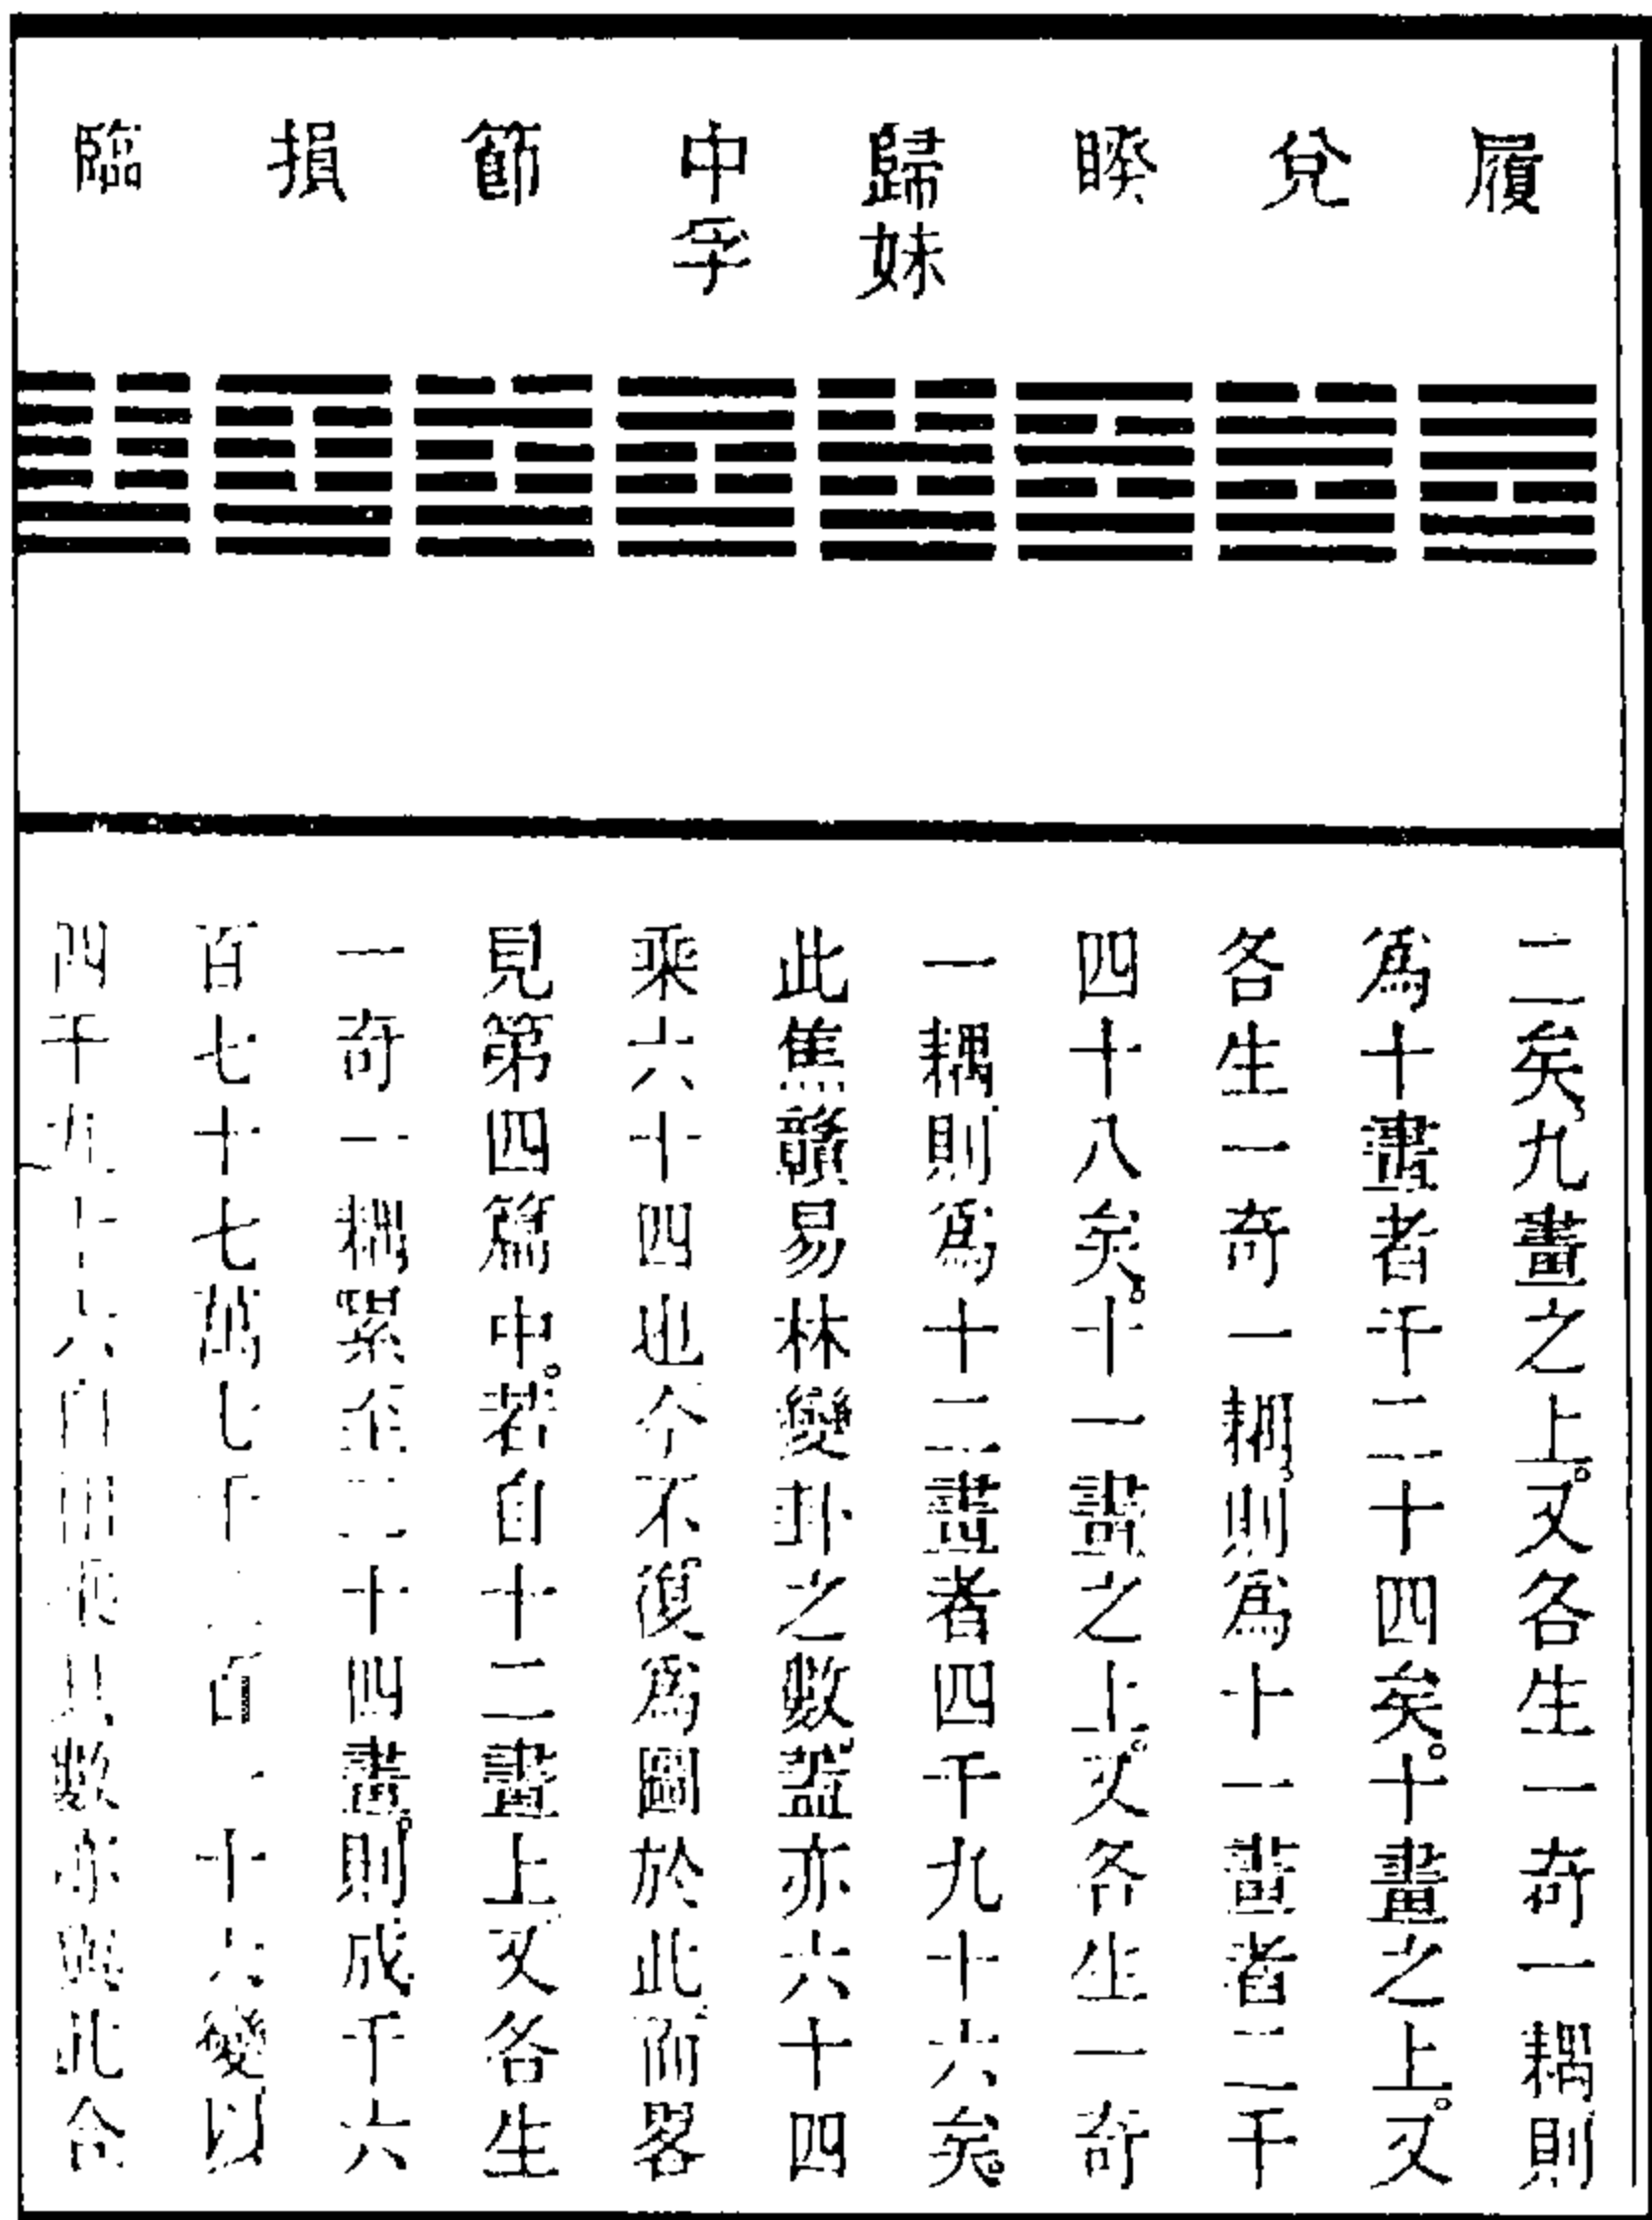 履
兌
睽
歸妹
中孚
節
損
臨
二矣九畫之上。又各生一奇一耦則
爲十畫者千二十四矣。十畫之上。又
各生一奇一耦則爲十一畫者二千
四十八矣。十一畫之上。又各生一奇
一耦則爲十二畫者四千九十六矣。
此焦贛易林變卦之數蓋亦六十四
乘六十四也今不復爲圖於此而畧
見第四篇中。若自十二畫上又各生
一奇一耦累至二十四畫。則成千六
百七十七萬七千百十六變以
四千九十六自相乘其數亦與此合